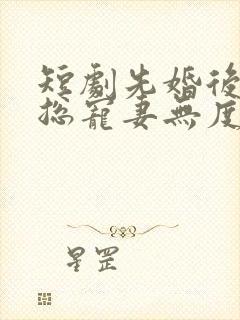 短劇先婚後
總寵妻無度
星罡